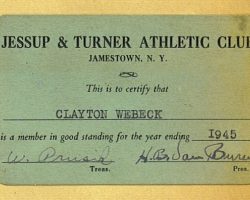 JESSUP & TURNER ATHLETIC CLUB
JAMESTOWN, N. Y.
This is to certify that
CLAYTON WEBECK
is a member in good standing for the year ending 1945
W.
Treas. Pres.